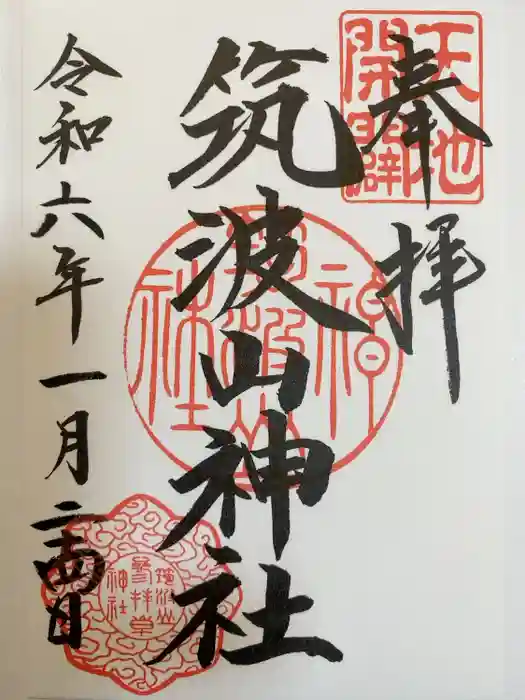 奉拝
天地
開闢
筑波山神社
筑波山
神社
令和六年一月二十四日
筑波山
参拝堂
神社